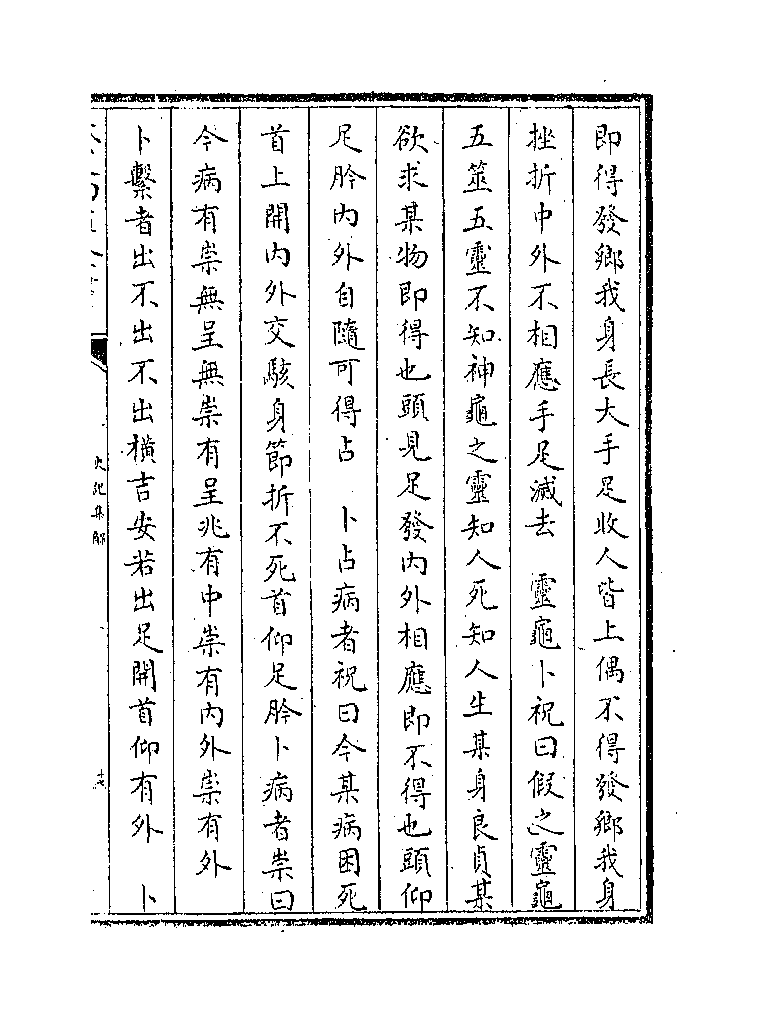 即得發鄉我身長大手足收人皆上偶不得發鄉我身
挫折中外不相應手足滅去　靈龜卜祝曰假之靈龜
五筮五靈不知神龜之靈知人死知人生某身良貞某
欲求某物即得也頭見足發内外相應即不得也頭仰
足肣内外自隨可得占　卜占病者祝曰今某病困死
首上開内外交駭身節折不死首仰足肣卜病者祟曰
今病有祟無呈無祟有呈兆有中祟有内外祟有外
卜繫者出不出不出横吉安若出足開首仰有外　卜
史記集解